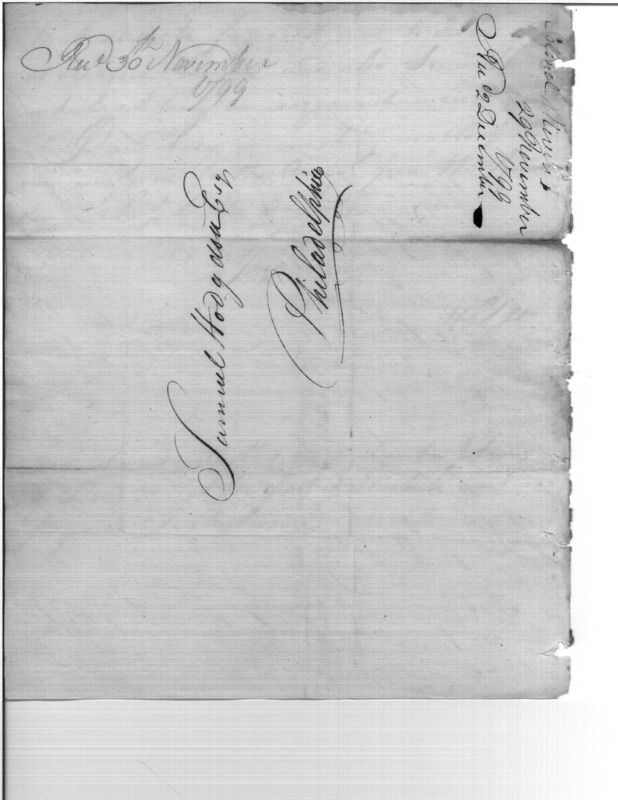 Recd 30th November
1799
Samuel Hodgdon Esqr
Philadelphia
29 November
1799
Recd 2 December